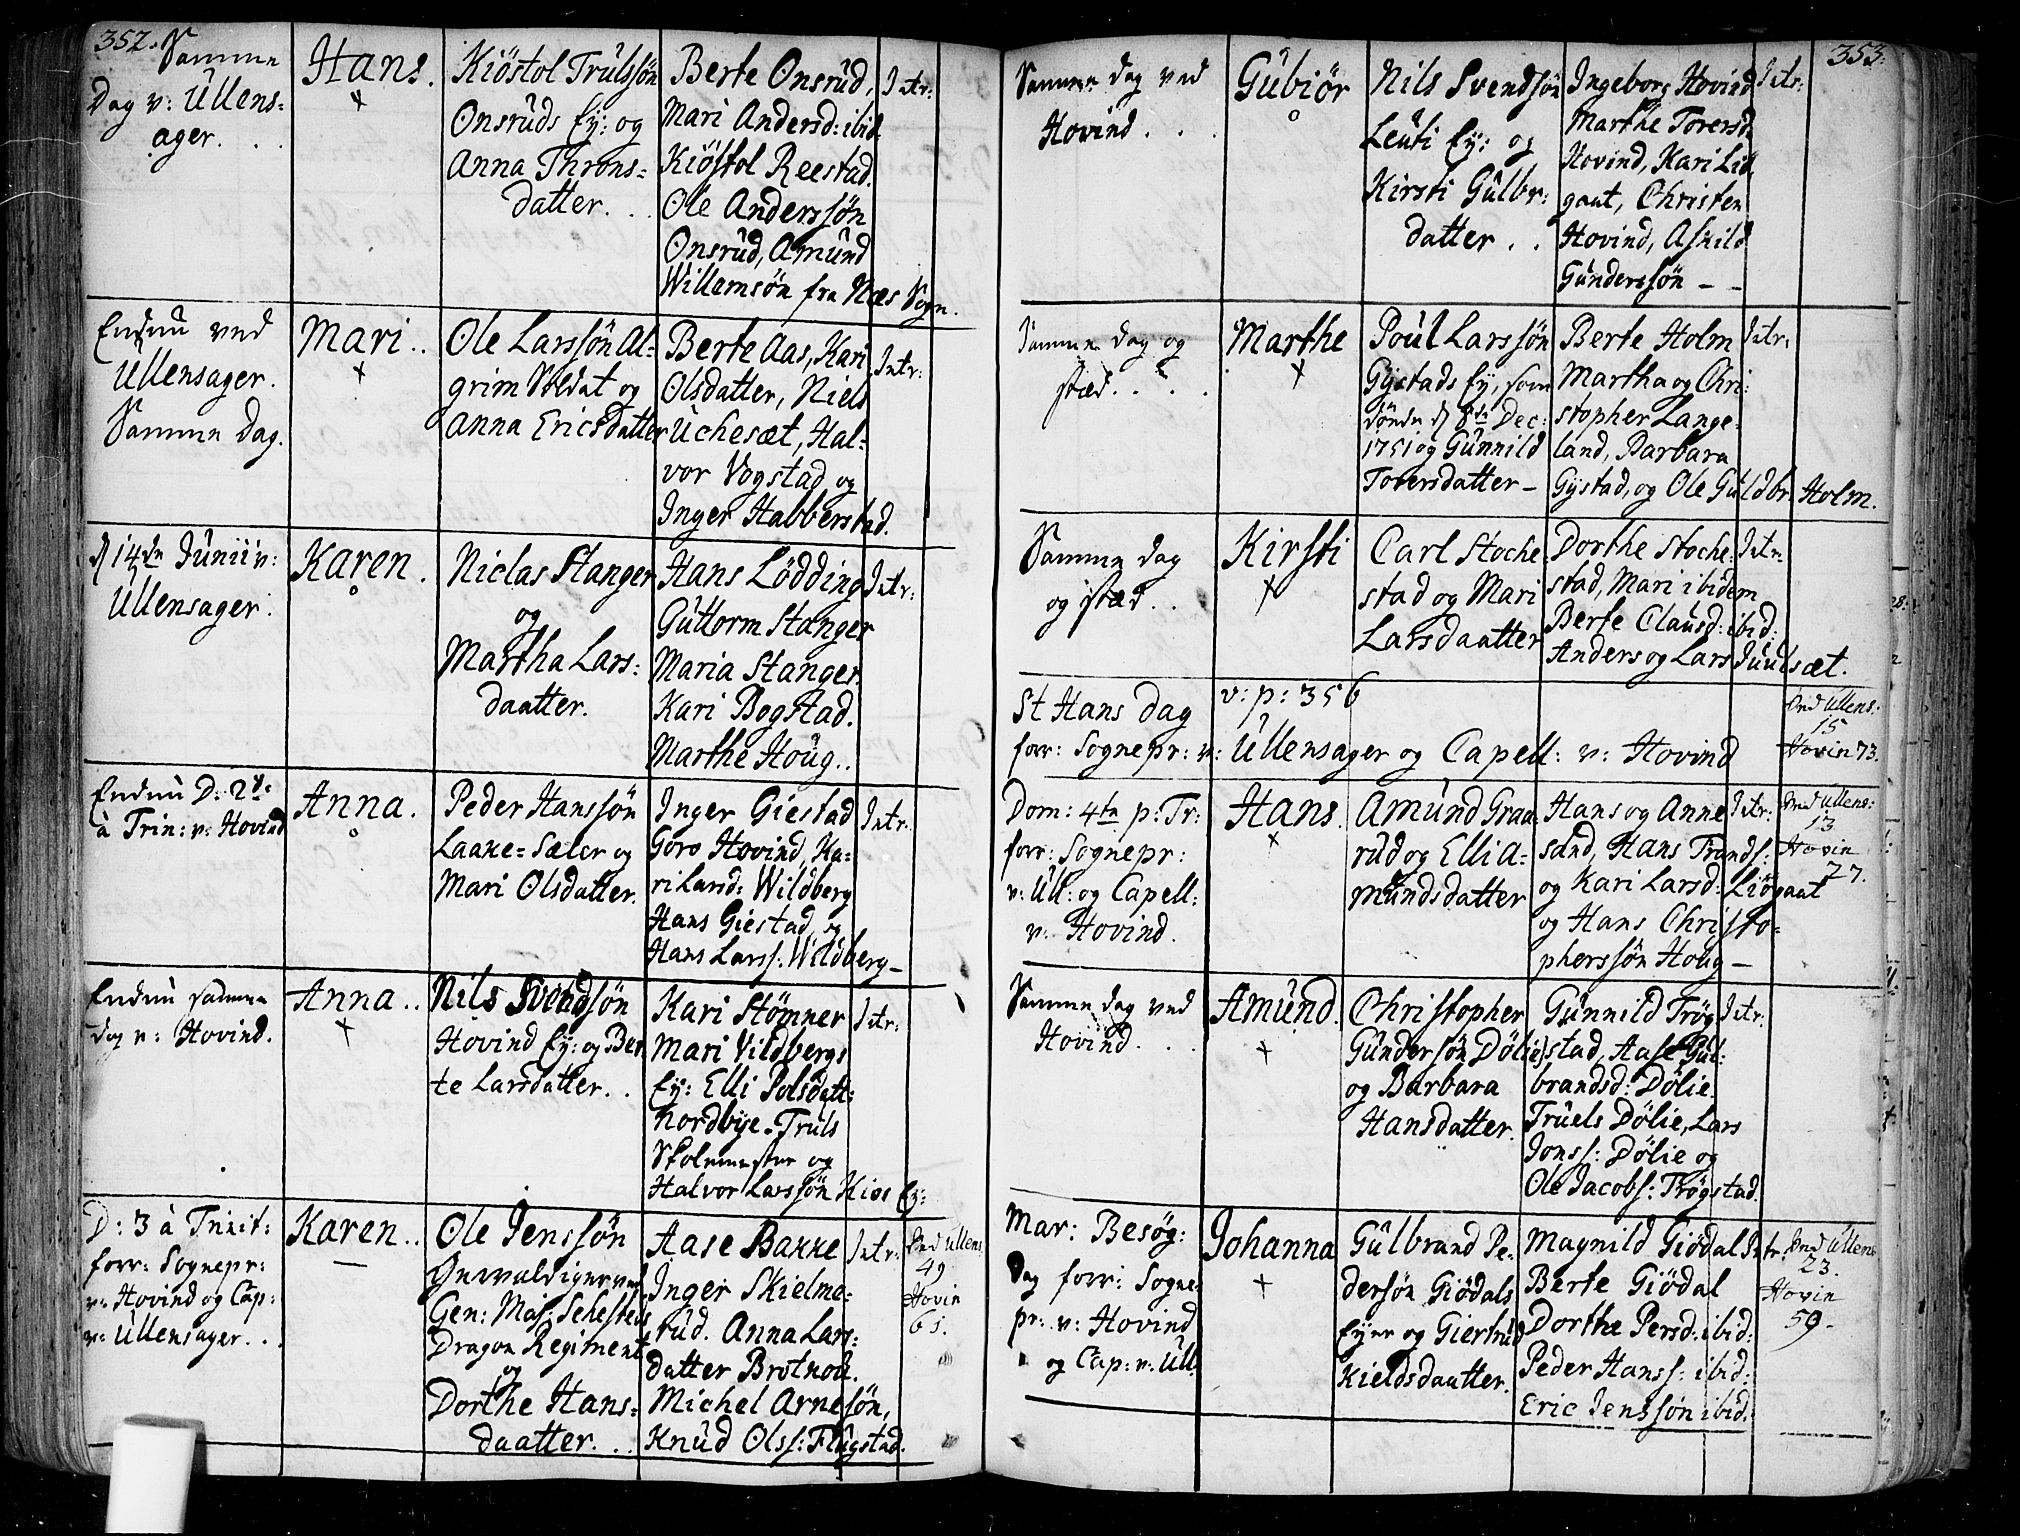 352.
Samme
Dag v: Ullens-
ager. . .
Hans.
Kiöstol Trulssön
Onsruds Ey: og
Anna Throns-
datter. . .
Berte Onsrud,
Mari Andersd: ibid.
Kiöstol Reestad.
Ole Anderssön
Onsrud, Amund
Willemsön fra Næs Sogn.
Intr:
Endnu ved
Ullensager.
Samme Dag.
Mari..
Ole Larssön Al-
grim Soldat og
Anna Ericsdatter
Berte Aas, Kari
Olsdatter, Niels
Uchesæt, Hal-
vor Vogstad og
Inger Habberstad.
Intr:
d 14de Junii v:
Ullensager.
Karen.
Niclas Stanger
og
Martha Lars-
daatter.
Hans Lödding
Guttorm Stanger
Maria Stanger.
Kari Bogstad.
Marthe Houg..
Intr:
Endnu D: 2
à Trin: v: Hovind
Anna.
Peder Hanssön
Laake-Sæler og
Mari Olsdatter.
Inger Giestad
Goro Hovind, Ka-
ri Larsd: Wildberg
Hans Giestad, og
Hans Larss: Wildberg—
Intr.
Endnu samme
dag v: Hovind.
Anna..
Nils Svendsön
Hovind Ey: og Ber
te Larsdatter..
Kari Stömner
Mari Vildbergs
Ey: Elli Polsdatt:
Nordbye. Truls
Skolemester og
Halvor Larssön Kios Ey:
Intr:
D: 3 à Trinit:
forr: Sognepr:
v: Hovind og Cap:
v: Ullensager. . .
Karen..
Ole Jenssön
Gewaldiger ved
Gen: Maj: Sehesteds
Dragon Regiment
og
Dorthe Hans-
daatter. . .
Aase Bakke
Inger Skielme-
rud. Anna Lars-
datter Brotnou.
Michel Arnesön,
Knud Olss: Flugstad.
Intr:
Ved Ullens
49
Hovin
61.
353.
Samme dag ved
Hovind. . .
Gubiör
Nils Svendsön
Leuti Ey: og
Kirsti Gulbr:
datter. . .
Ingeborg Hovind
Marthe Toversd.
Hovind, Kari Lid
gaat, Christen
Hovind, Askild
Gunderssön – –
Intr:
Samme dag og
stæd. . . .
Marthe
Poul Larssön
Gystads Ey, som
döde d 8de Dec:
1751 og Gunnild
Toversdatter –
Berte Holm
Martha og Chri-
stopher Lange-
land, Barbara
Gystad, og Ole Guldbr. Holm.
Intr:
Samme dag
og stæd..
Kirsti
Carl Stoche
stad og Mari
Larsdaatter
Dorthe Stoche-
stad, Mari ibidem
Berte Clausd: ibid:
Anders og Lars Juulsæt.
Intr.
St Hans dag v: p: 356
forr: Sognepr: v: Ullensager og Capell: v: Hovind
Ved Ullens:
15
Hovin 73.
Dom: 4ta p: Tr:
forr: Sognepr:
v: Ull: og Capell:
v: Hovind.
Hans.
Amund Graa-
rud og Elli A-
mundsdatter
Hans og Anne
sand, Hans Trands:
og Kari Larsd: Liögaat
og Hans Christo-
pherssön Houg —
Intr:
Ved Ullens:
13
Hovin
27.
Samme dag ved
Hovind. . .
Amund.
Christopher
Gundersön Dölie
og Barbara
Hansdatter.
Gunnild Trög
stad, Aase Gul-
brandsd: Dölie.
Truels Dölie, Lars
Jonss: Dölie og
Ole Jacobs: Trögstad.
Intr:
Mar: Besøg:
Dag forr: Sogne
pr: v: Hovind
og Cap: v: Ull.
Johanna
Gulbrand Pe-
dersön Giödals
Eyer og Giertrud
Kieldsdaatter.
Magnild Giödal
Berte Giödal
Dorthe Persd: ibid:
Peder Hanss: ibid:
Eric Jenssön ibid:
Intr:
Ved Ullens
23.
Hovin
59.